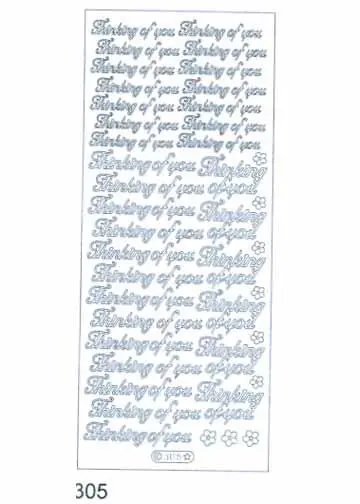 Thinking of you Thinking of you
Thinking of you Thinking of you
Thinking of you Thinking of you
Thinking of you Thinking of you
Thinking of you Thinking of you
Thinking of you Thinking of you
Thinking of you Thinking of you
Thinking of you Thinking
Thinking of you of you
Thinking of you Thinking
Thinking of you of you
Thinking of you Thinking
Thinking of you of you
Thinking of you Thinking
Thinking of you of you
Thinking of you Thinking
Thinking of you of you
Thinking of you Thinking
Thinking of you of you
Thinking of you
305
305